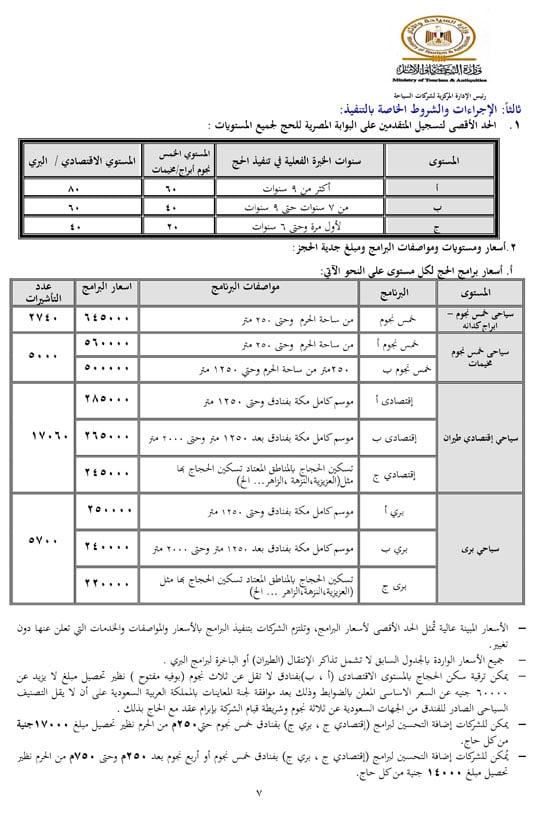 وزارة السياحة والآثار
Ministry of Tourism & Antiquities
رئيس الإدارة المركزية لشركات السياحة
ثالثاً: الإجراءات والشروط الخاصة بالتنفيذ:
١. الحد الأقصى لتسجيل المتقدمين على البوابة المصرية للحج لجميع المستويات :
المستوى سنوات الخبرة الفعلية في تنفيذ الحج المستوي الخمس نجوم أبراج/مخيمات المستوي الاقتصادي / البري
أ أكثر من ٩ سنوات ٦٠ ٨٠
ب من ٧ سنوات حتى ٩ سنوات ٤٠ ٦٠
ج لأول مرة وحتى ٦ سنوات ٢٠ ٤٠
٢.أسعار ومستويات ومواصفات البرامج ومبلغ جدية الحجز:
أ. أسعار برامج الحج لكل مستوى على النحو الآتي:
المستوى البرنامج مواصفات البرنامج اسعار البرامج عدد التأشيرات
سياحى خمس نجوم – ابراج كدانه خمس نجوم من ساحة الحرم وحتى ٢٥٠ متر ٦٤٥٠٠٠ ٢٧٤٠
سياحى خمس نجوم مخيمات خمس نجوم أ من ساحة الحرم وحتى ٢٥٠ متر ٥٦٠٠٠٠ ٥٠٠٠
خمس نجوم ب ٢٥٠متر من ساحة الحرم وحتي ١٢٥٠ متر ٥٠٠٠٠٠
سياحي إقتصادي طيران إقتصادى أ موسم كامل مكة بفنادق وحتى ١٢٥٠ متر ٢٨٥٠٠٠ ١٧٠٦٠
إقتصادى ب موسم كامل مكة بفنادق بعد ١٢٥٠ متر وحتى ٢٠٠٠ متر ٢٦٥٠٠٠
إقتصادي ج تسكين الحجاج بالمناطق المعتاد تسكين الحجاج بها مثل(العزيزية،النزهة ،الزاهر... الخ) ٢٤٥٠٠٠
سياحي برى بري أ موسم كامل مكة بفنادق وحتى ١٢٥٠ متر ٢٥٠٠٠٠ ٥٧٠٠
بري ب موسم كامل مكة بفنادق بعد ١٢٥٠ متر وحتى ٢٠٠٠ متر ٢٤٠٠٠٠
برى ج تسكين الحجاج بالمناطق المعتاد تسكين الحجاج بها مثل (العزيزية،النزهة،الزاهر ... الخ) ٢٢٠٠٠٠
– الأسعار المبينة عالية تُمثل الحد الأقصى لأسعار البرامج، وتلتزم الشركات بتنفيذ البرامج بالأسعار والمواصفات والخدمات التي تعلن عنها دون
تغيير.
– جميع الأسعار الواردة بالجدول السابق لا تشمل تذاكر الإنتقال (الطيران) أو الباخرة لبرامج البري .
– يمكن ترقية سكن الحجاج بالمستوى الاقتصادى (أ ، ب)بفنادق لا تقل عن ثلاث نجوم (بوفيه مفتوح ) نظير تحصيل مبلغ لا يزيد عن
٦٠٠٠٠ جنيه عن السعر الاساسى المعلن بالضوابط وذلك بعد موافقة لجنة المعاينات بالمملكة العربية السعودية على أن لا يقل التصنيف
السياحى الصادر للفندق من الجهات السعودية عن ثلاثة نجوم وشريطة قيام الشركة بإبرام عقد مع الحاج بذلك .
– يمكن للشركات إضافة التحسين لبرامج (إقتصادي ج ، بري ج) بفنادق خمس نجوم حتي٢٥٠م من الحرم نظير تحصيل مبلغ ١٧٠٠٠جنية
من كل حاج.
– يُمكن للشركات إضافة التحسين لبرامج (إقتصادي ج ، بري ج) بفنادق خمس نجوم أو أربع نجوم بعد ٢٥٠م وحتى ٧٥٠م من الحرم نظير
تحصيل مبلغ ١٤٠٠٠ جنية من كل حاج.
٧